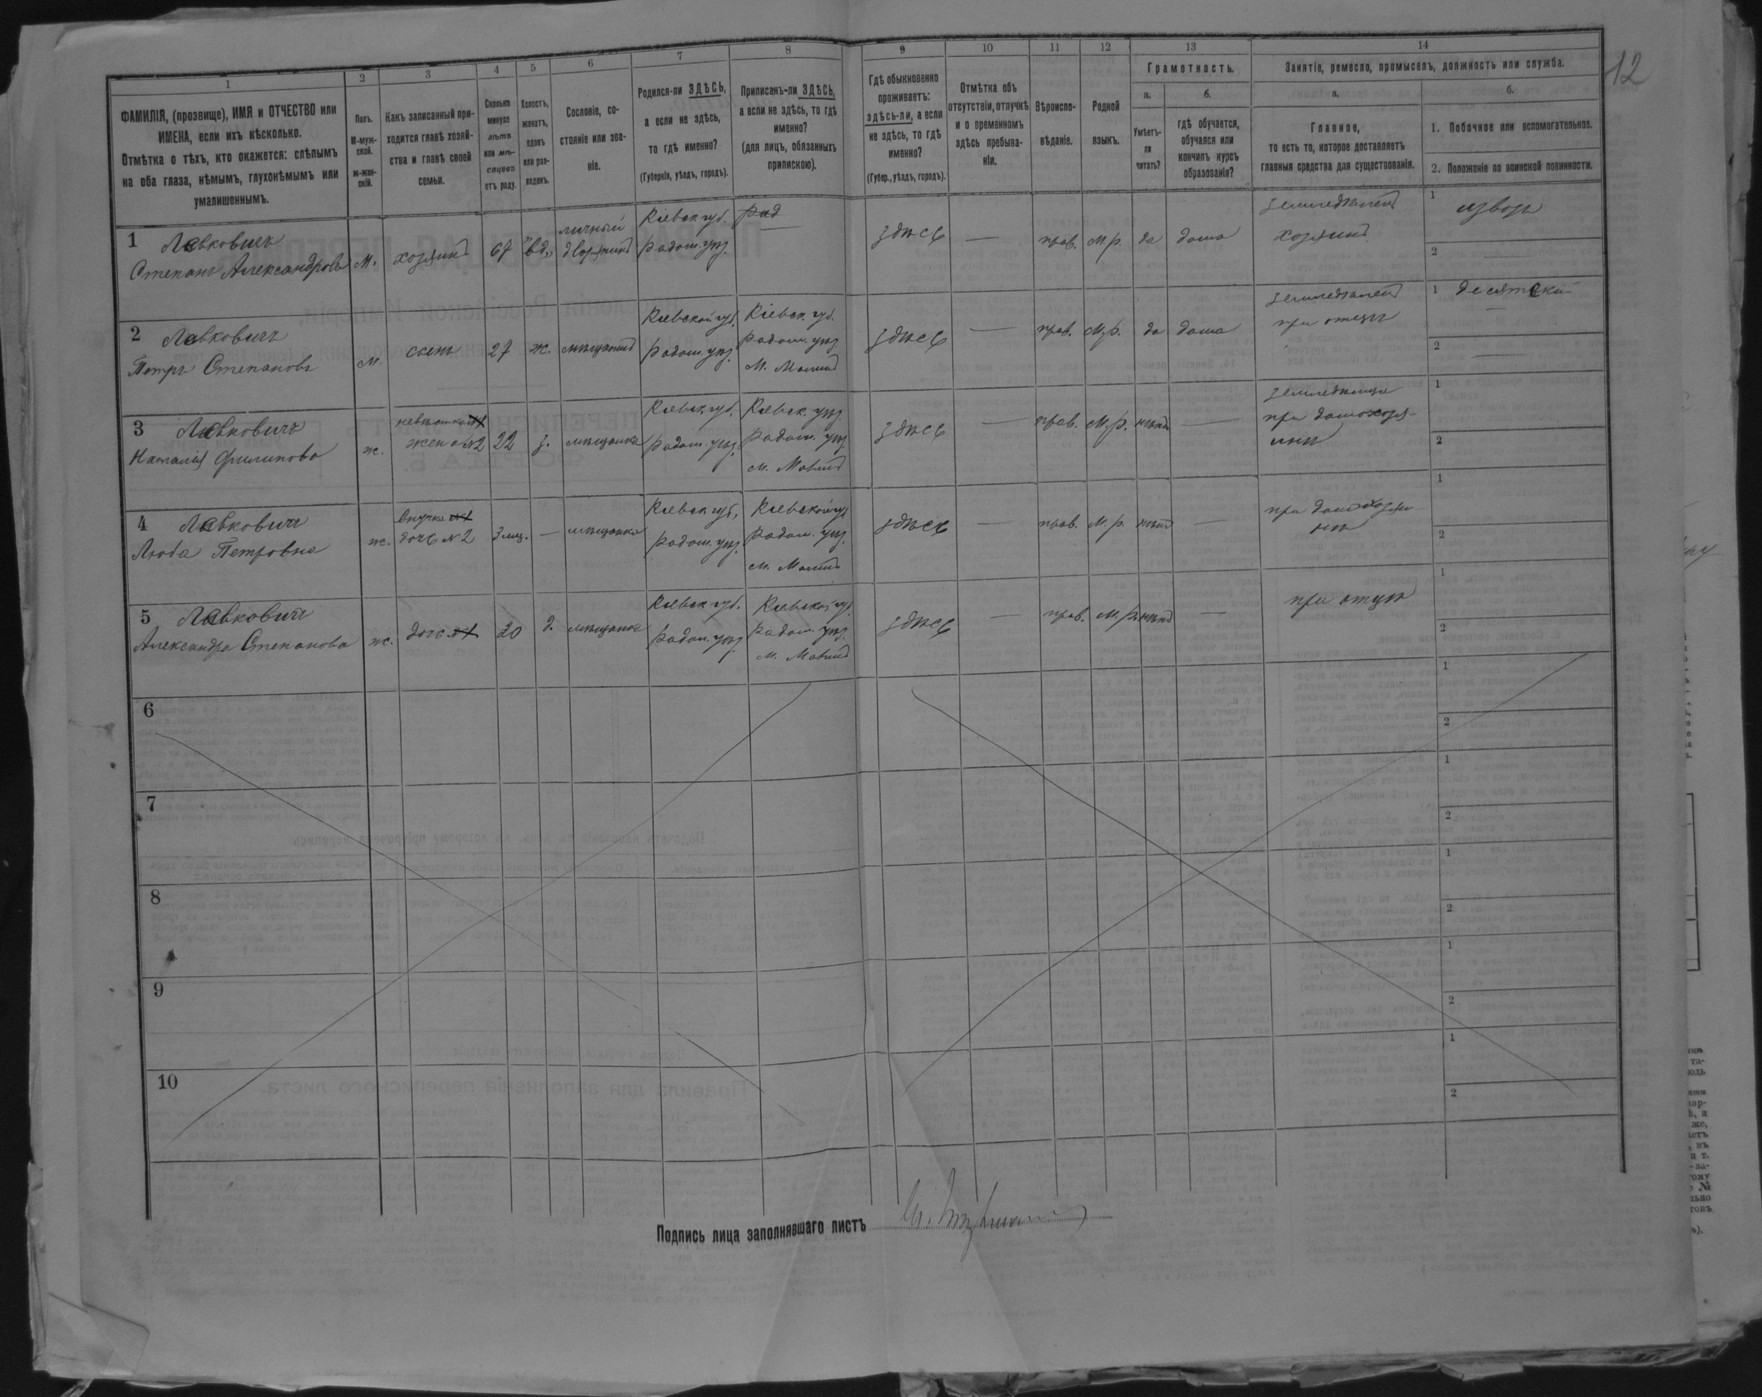 12
1
ФАМИЛІЯ, (прозвище), ИМЯ и ОТЧЕСТВО или
ИМЕНА, если ихъ нѣсколько.
Отмѣтка о тѣхъ, кто окажется: слѣпымъ
на оба глаза, нѣмымъ, глухонѣмымъ или
умалишеннымъ.
2
Полъ.
М-муж-
ской.
ж-жен-
скій.
3
Какъ записанный при-
ходится главѣ хозяй-
ства и главѣ своей
семьи.
4
Сколько
минуло
лѣтъ
или мѣ-
сяцевъ
отъ роду.
5
Холостъ,
женатъ,
вдовъ
или раз-
веденъ.
6
Сословіе, со-
стояніе или зва-
ніе.
7
Родился-ли ЗДѢСЬ,
а если не здѣсь,
то гдѣ именно?
(Губернія, уѣздъ, городъ).
8
Приписанъ-ли ЗДѢСЬ,
а если не здѣсь, то гдѣ
именно?
(для лицъ, обязанныхъ
припискою).
9
Гдѣ обыкновенно
проживаетъ:
здѣсь-ли, а если
не здѣсь, то гдѣ
именно?
(Губер., уѣздъ, городъ).
10
Отмѣтка объ
отсутствіи, отлучкѣ
и о временномъ
здѣсь пребыва-
ніи.
11
Вѣроиспо-
вѣданіе.
12
Родной
языкъ.
13
Грамотность.
а.
Умѣетъ-
ли
читать?
б.
гдѣ обучается,
обучался или
кончилъ курсъ
образованія?
14
Занятіе, ремесло, промыселъ, должность или служба.
а.
Главное,
то есть то, которое доставляетъ
главныя средства для существованія.
б.
1. Побочное или вспомогательное.
2. Положеніе по воинской повинности.
1 Левковичъ
Степанъ Александровъ
М.
хозяинъ
67
вд.
личный
дворянинъ
Кіевск. губ.
Радом. уѣз.
здѣсь
прав.
М.р.
да
дома
хозяинъ
1 извозъ
2
2 Левковичъ
Петръ Степановъ
М.
сынъ
27
ж.
мѣщанинъ
Кіевской губ.
Радом. уѣз.
Кіевск. губ.
Радом. уѣз.
здѣсь
прав.
М.р.
да
дома
при отцѣ
1 десятскій
2
3 Левковичъ
Наталія Филипова
ж.
жена №2
22
з.
мѣщанка
Кіевск. губ.
Радом. уѣз.
Радом. уѣз
здѣсь
прав.
М.р.
нѣтъ
1
2
4 Левковичъ
Люба Петровна
ж.
Внучка №1
дочь №2
3 мѣс.
мѣщанка
Кіевск. губ.
Радом. уѣз.
Кіевской губ
Радом. уѣз.
здѣсь
прав.
М.р.
нѣтъ
1
2
5 Левковичъ
Александра Степанова
ж.
дочь №1
20
д.
мѣщанка
Кіевск. губ.
Радом. уѣз
Кіевской губ.
Радом. уѣз.
здѣсь
прав.
М.р.
нѣтъ
при отцѣ
1
2
6
1
2
7
1
2
8
1
2
9
1
2
10
1
2
Подпись лица заполнявшаго листъ